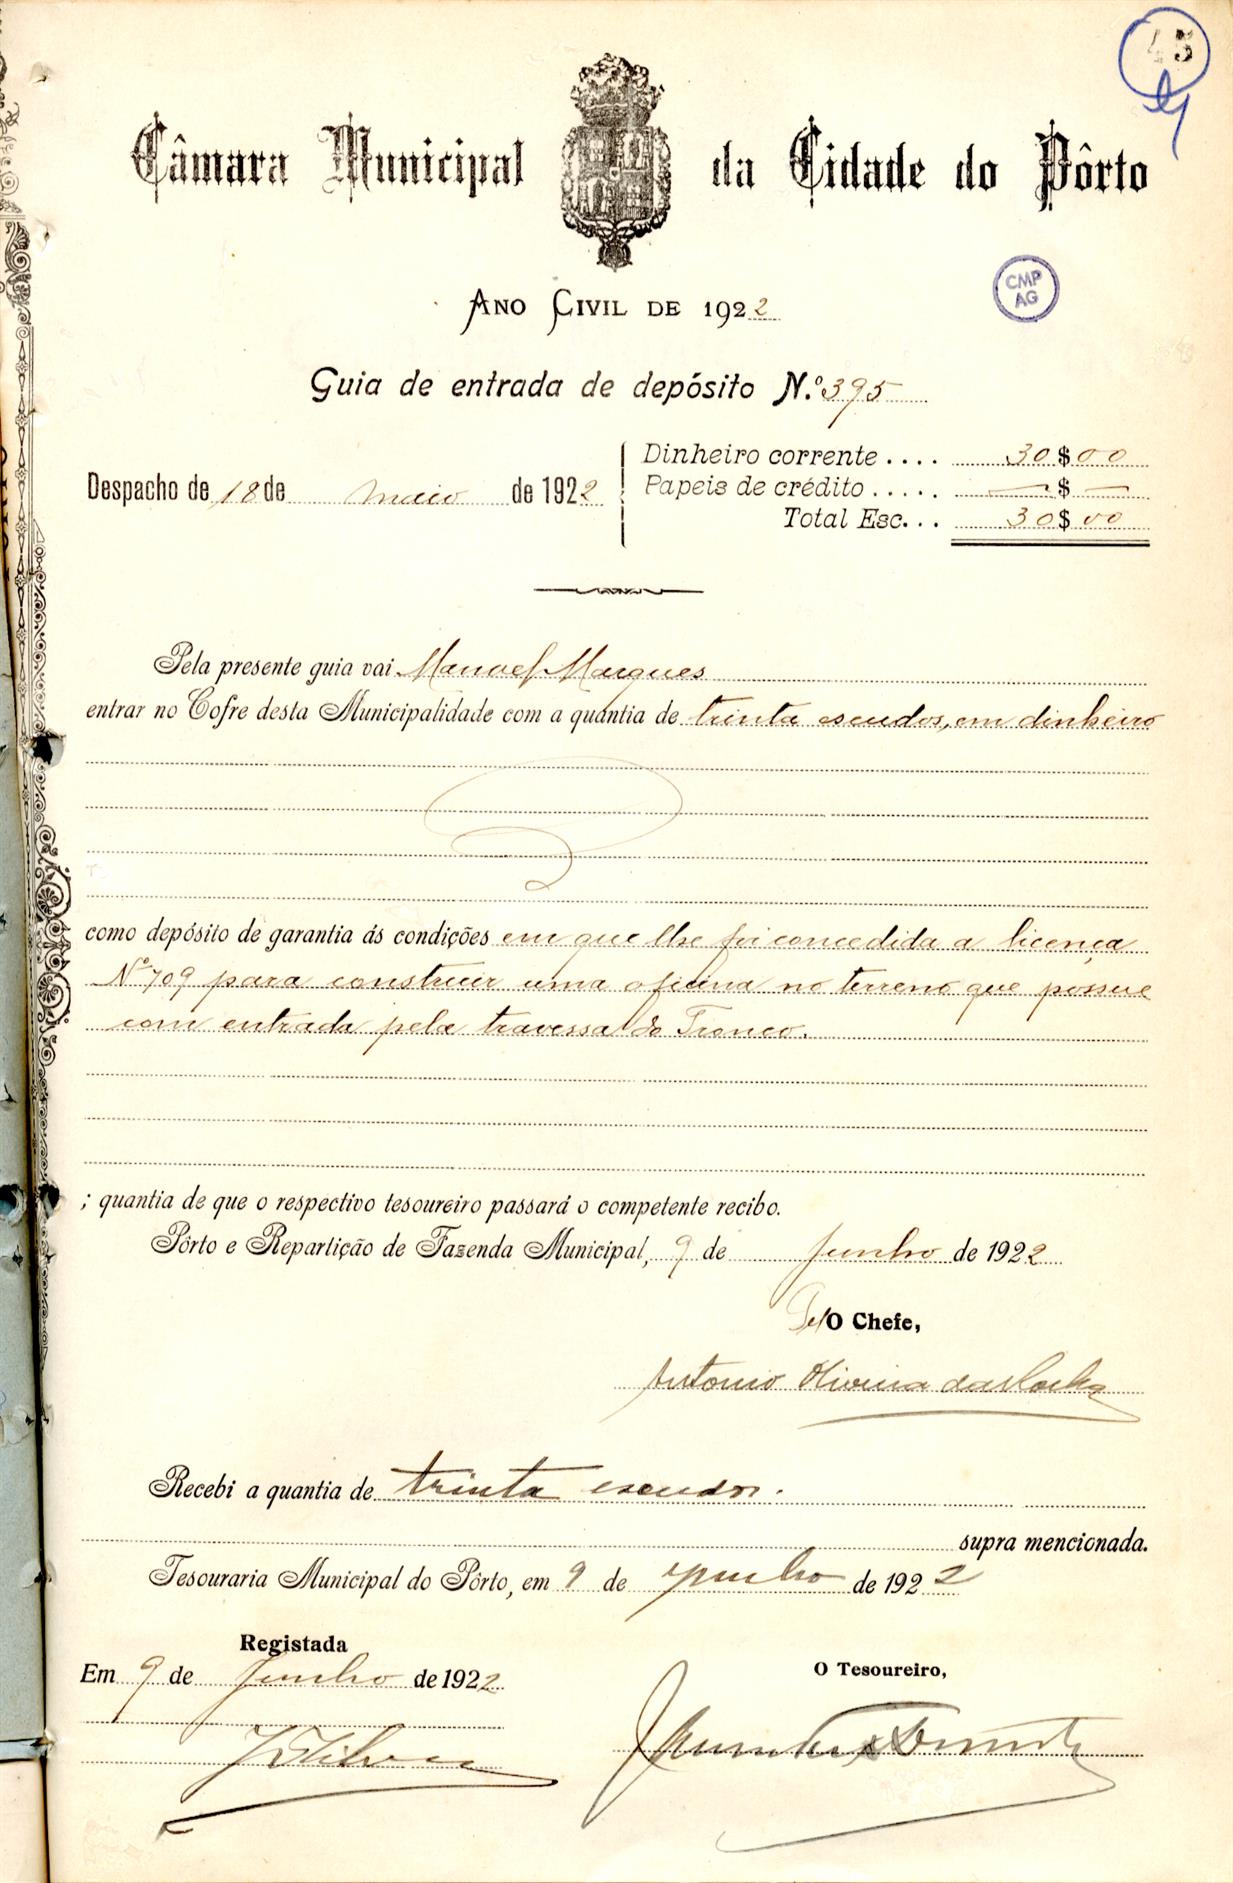 45
Câmara Municipal da Cidade do Pôrto
CMP
AG
ANO CIVIL DE 1922
Guia de entrada de depósito N.º 395
Despacho de 18 de maio de 1922
Dinheiro corrente .... 30$00
Papeis de crédito ..... —$—
Total Esc... 30$00
Pela presente guia vai Manoel Marques
entrar no Cofre desta Municipalidade com a quantia de trinta escudos, em dinheiro
como depósito de garantia ás condições em que lhe foi concedida a licença
Nº 709 para construir uma oficina no terreno que possue
com entrada pela travessa do Tronco.
; quantia de que o respectivo tesoureiro passará o competente recibo.
Pôrto e Repartição de Fazenda Municipal, 9 de Junho de 1922
Pel/O Chefe,
Antonio Oliveira da Rocha
Recebi a quantia de trinta escudos.
supra mencionada.
Tesouraria Municipal do Pôrto, em 9 de junho de 1922
Registada
Em 9 de Junho de 1922
O Tesoureiro,